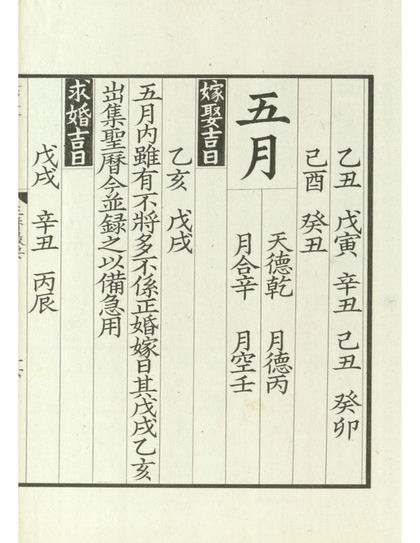 乙丑 戊寅 辛丑 己丑 癸卯
己酉 癸丑
五月
天德乾 月德丙
月合辛 月空壬
嫁娶吉日
乙亥 戊戌
五月內雖有不將多不係正婚嫁日其戊戌乙亥
出集聖曆今並録之以備急用
求婚吉日
戊戌 辛丑 丙辰